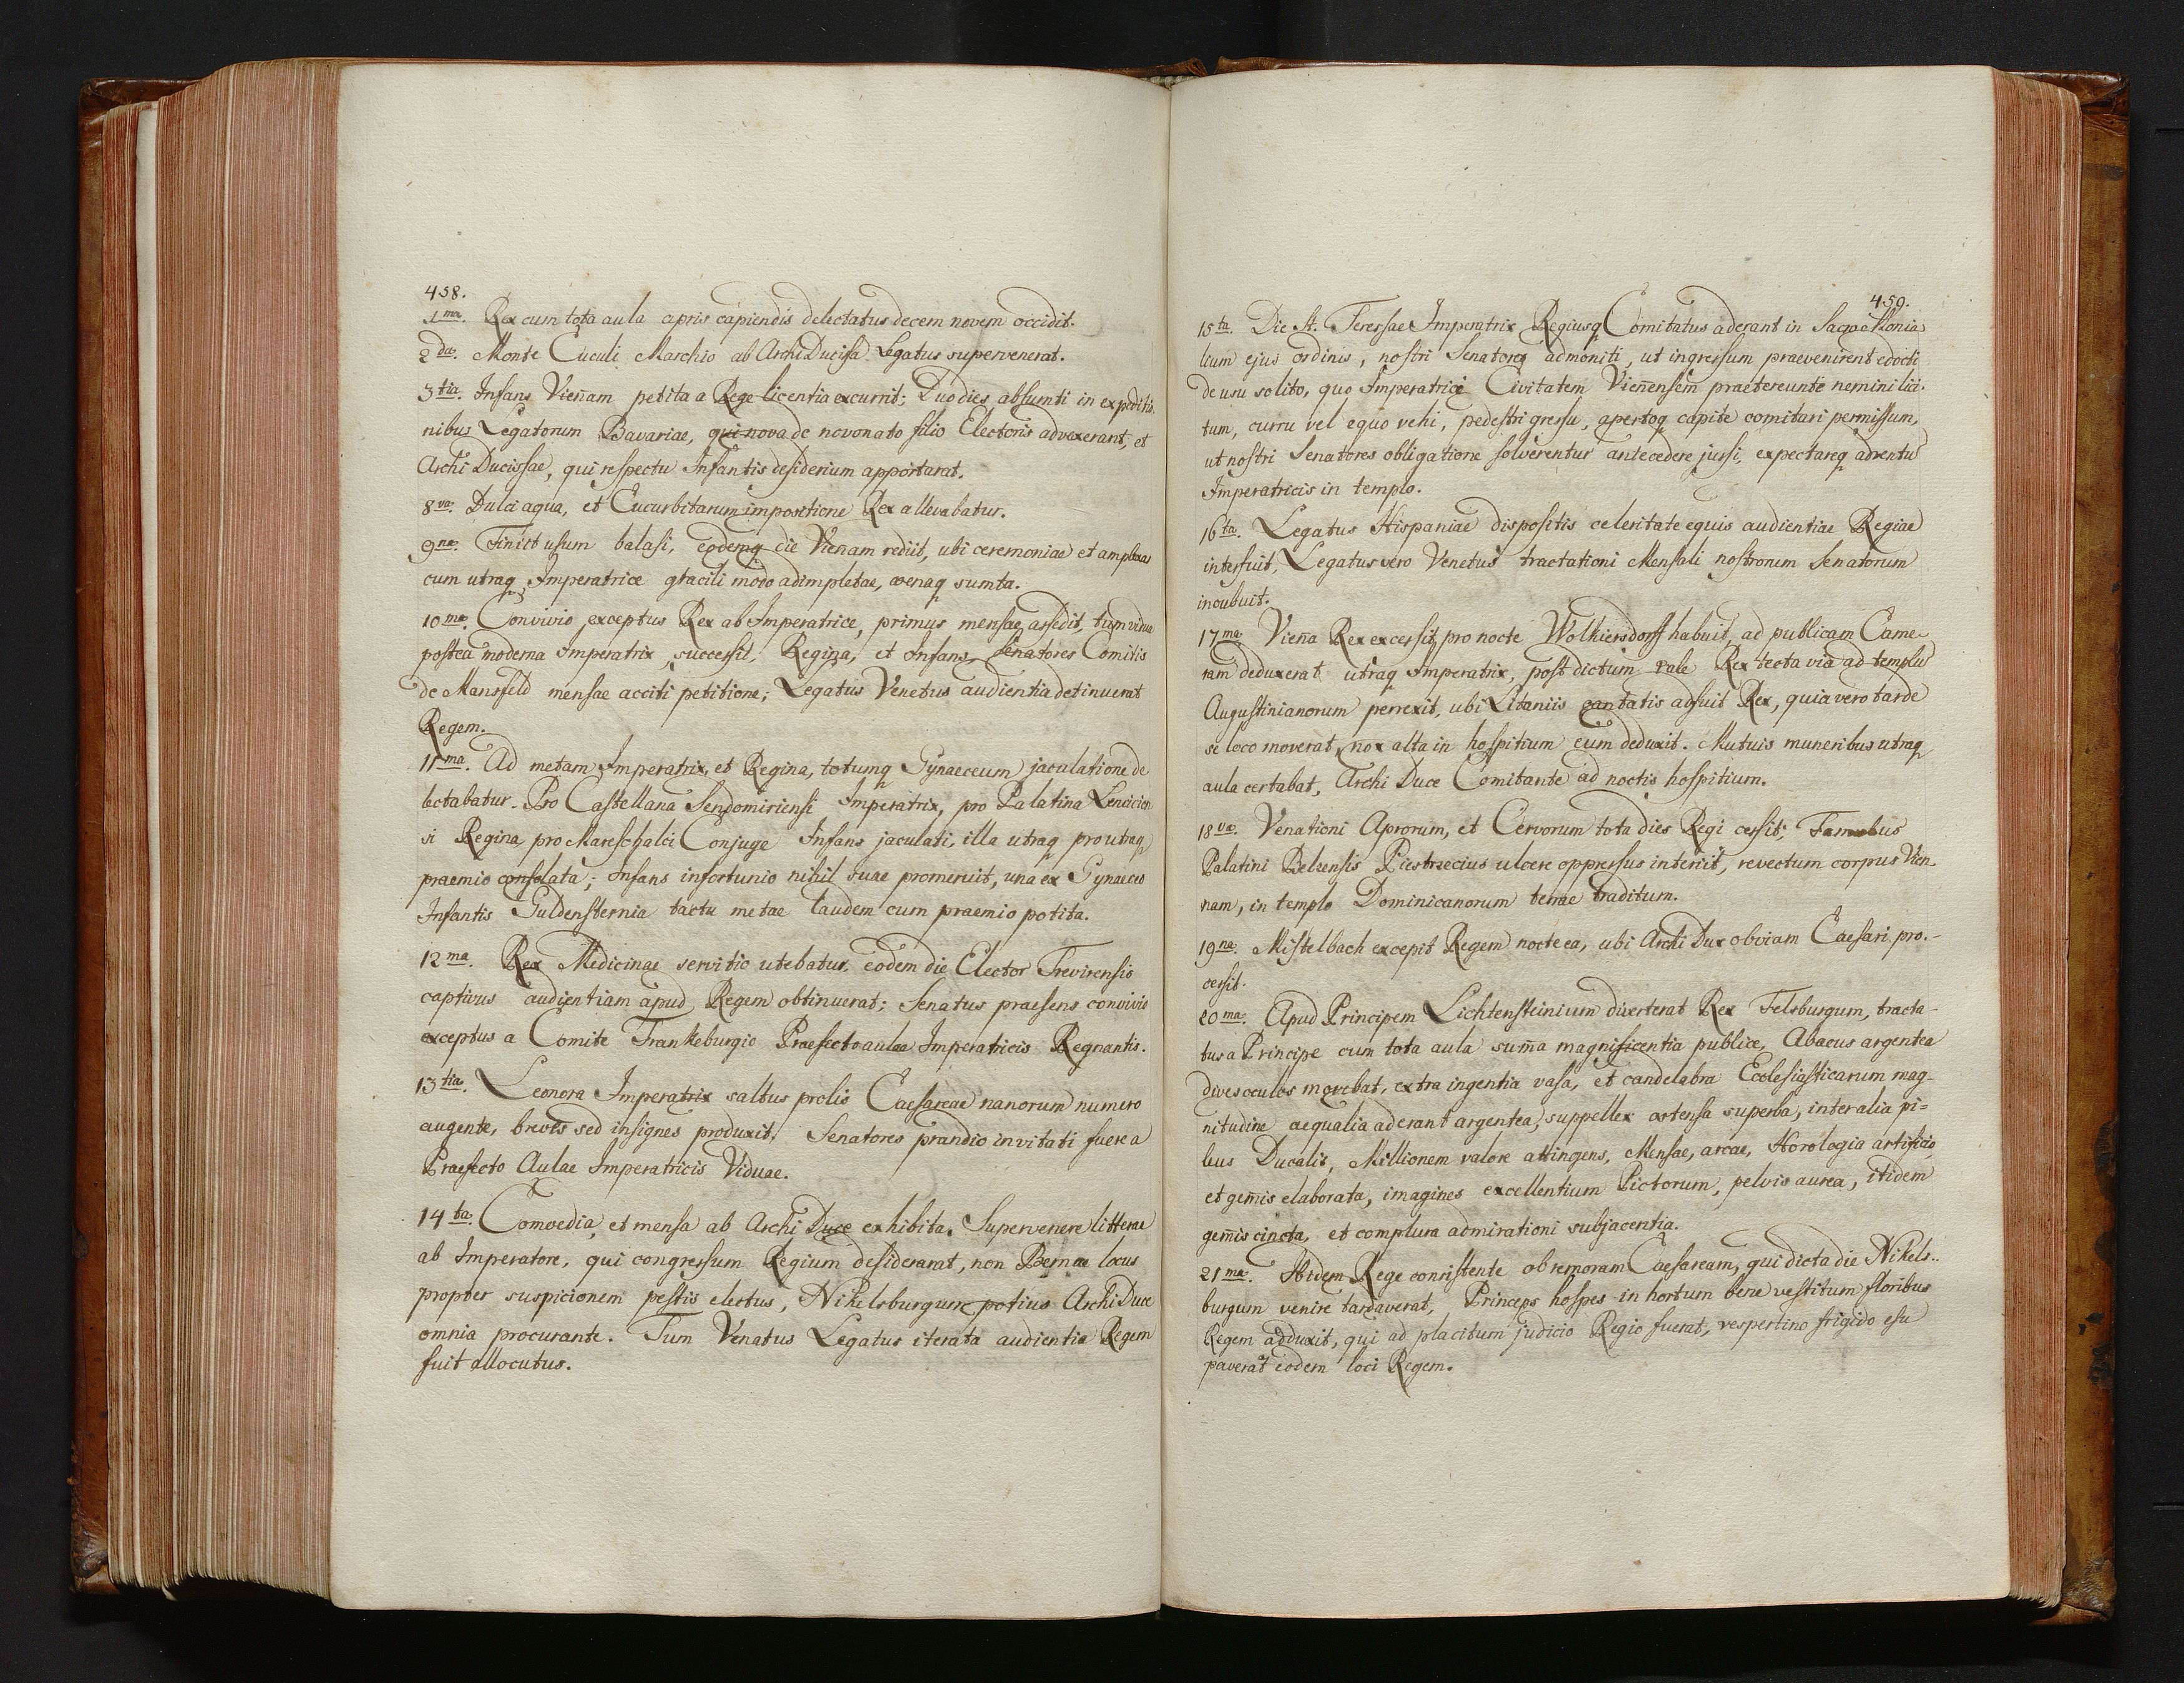 458.
1ma. Rex cum tota aula apris capiendis delectatus decem novem occidit.
2da. Monte Cuculi Marchio ab ArchiDucissa Legatus supervenerat.
3tia. Infans Vieñam petita a Rege licentia excurrit; Duo dies absumti in expeditio
nibus Legatorum Bavariae, qui nova de novonato filio Electoris advexerant, et
Archi Ducissae, qui respectu Infantis desiderium apportarat.
8va. Dulci aqua, et Cucurbitarum impositione Rex allevabatur.
9na. Finiit usum balasi, eodemq die Vieñam rediit, ubi ceremoniae et amplexus
cum utraq Imperatrice gracili modo adimpletae, coenaq sumta.
10ma. Convivio exceptus Rex ab Imperatrice, primus mensae assedit, tum vidua
postea moderna Imperatrix successit, Regina, et Infans, Senatores Comitis
de Mansfeld mensae acciti petitione; Legatus Venetus audientia detinuerat
Regem.
11ma. Ad metam Imperatrix, et Regina, totumq Gynaeceum jaculatione de
lectabatur. Pro Castellana Sendomiriensi Imperatrix, pro Palatina Lencicien
si Regina pro Mareschalci Conjuge Infans jaculati, illa utraq pro utraq
praemio consolata; Infans infortunio nihil suae promeruit, una ex Gynaeceo
Infantis Guldensternia tactu metae laudem cum praemio potita.
12ma. Rex Medicinae servitio utebatur, eodem die Elector Trevirensis
captivus audientiam apud Regem obtinuerat; Senatus praesens convivio
exceptus a Comite Frankeburgio Praefecto aulae Imperatricis Regnantis.
13tia. Leonora Imperatrix saltus prolis Caesareae nanorum numero
augente, breves sed insignes produxit. Senatores prandio invitati fuere a
Praefecto Aulae Imperatricis Viduae.
14ta. Comoedia, et mensa ab Archi Duce exhibita. Supervenere litterae
ab Imperatore, qui congressum Regium desiderarat, non Bernae locus
propter suspicionem pestis electus, Nikelsburgum potius ArchiDuce
omnia procurante. Tum Venatus Legatus iterata audientia Regem
fuit allocutus.
459.
15ta. Die St. Teressae Imperatrix Regiusq Comitatus aderant in Sacro Monia
lium ejus ordinis, nostri Senatores admoniti, ut ingressum praevenirent edocti
de usu solito, quo Imperatrice Civitatem Vieñensem praetereunte nemini lici
tum, curru vel equo vehi, pedestri gressu, apertoq capite comitari permissum,
ut nostri Senatores obligatione solverentur antecedere jussi, expectareq adventu
Imperatricis in templo.
16ta. Legatus Hispaniae dispositis celeritate equis audientiae Regiae
interfuit, Legatus vero Venetus tractationi Mensali nostrorum Senatorum
incubuit.
17ma. Vieña Rex excessit, pro nocte Wolkiersdorff habuit, ad publicam Came
ram deduxerat utraq Imperatrix, post dictum vale Rex tecta via ad templu
Augustinianorum perrexit, ubi Litaniis cantatis adfuit Rex, quia vero tarde
se loco moverat, nox alta in hospitium eum deduxit. Mutuis muneribus utraq
aula certabat, Archi Duce Comitante ad noctis hospitium.
18va. Venationi Aprorum, et Cervorum tota dies Regi cessit; Famulus
Palatini Belzensis Piestrzecius ulcere oppressus interiit, revectum corpus Vien
nam, in templo Dominicanorum terrae traditum.
19na. Mistelbach excepit Regem nocte ea, ubi Archi Dux obviam Caesari pro.-
cessit.
20ma. Apud Principem Lichtensteinium diverterat Rex Felsburgum, tracta-
tus a Principe cum tota aula suma magnificentia publice, Abacus argentea
dives oculos movebat, extra ingentia vasa, et candelabra Ecclesiasticarum mag-
nitudine aequalia aderant argentea, suppellex ostensa superba, inter alia pi=
leus Ducalis, Millionem valore attingens, Mensae, arcae, Horologia artificio,
et gemis elaborata, imagines excellentium Pictorum, pelvis aurea, itidem
gemis cincta, et complura admirationi subjacentia.
21ma. Ibidem Rege consistente ob remoram Caesaream, qui dicta die Nikels..
burgum venire tardaverat, Princeps hospes in hortum bene vestitum floribus
Regem adduxit, qui ad placitum judicio Regio fuerat, vespertino frigido esu
paverat eodem loci Regem.